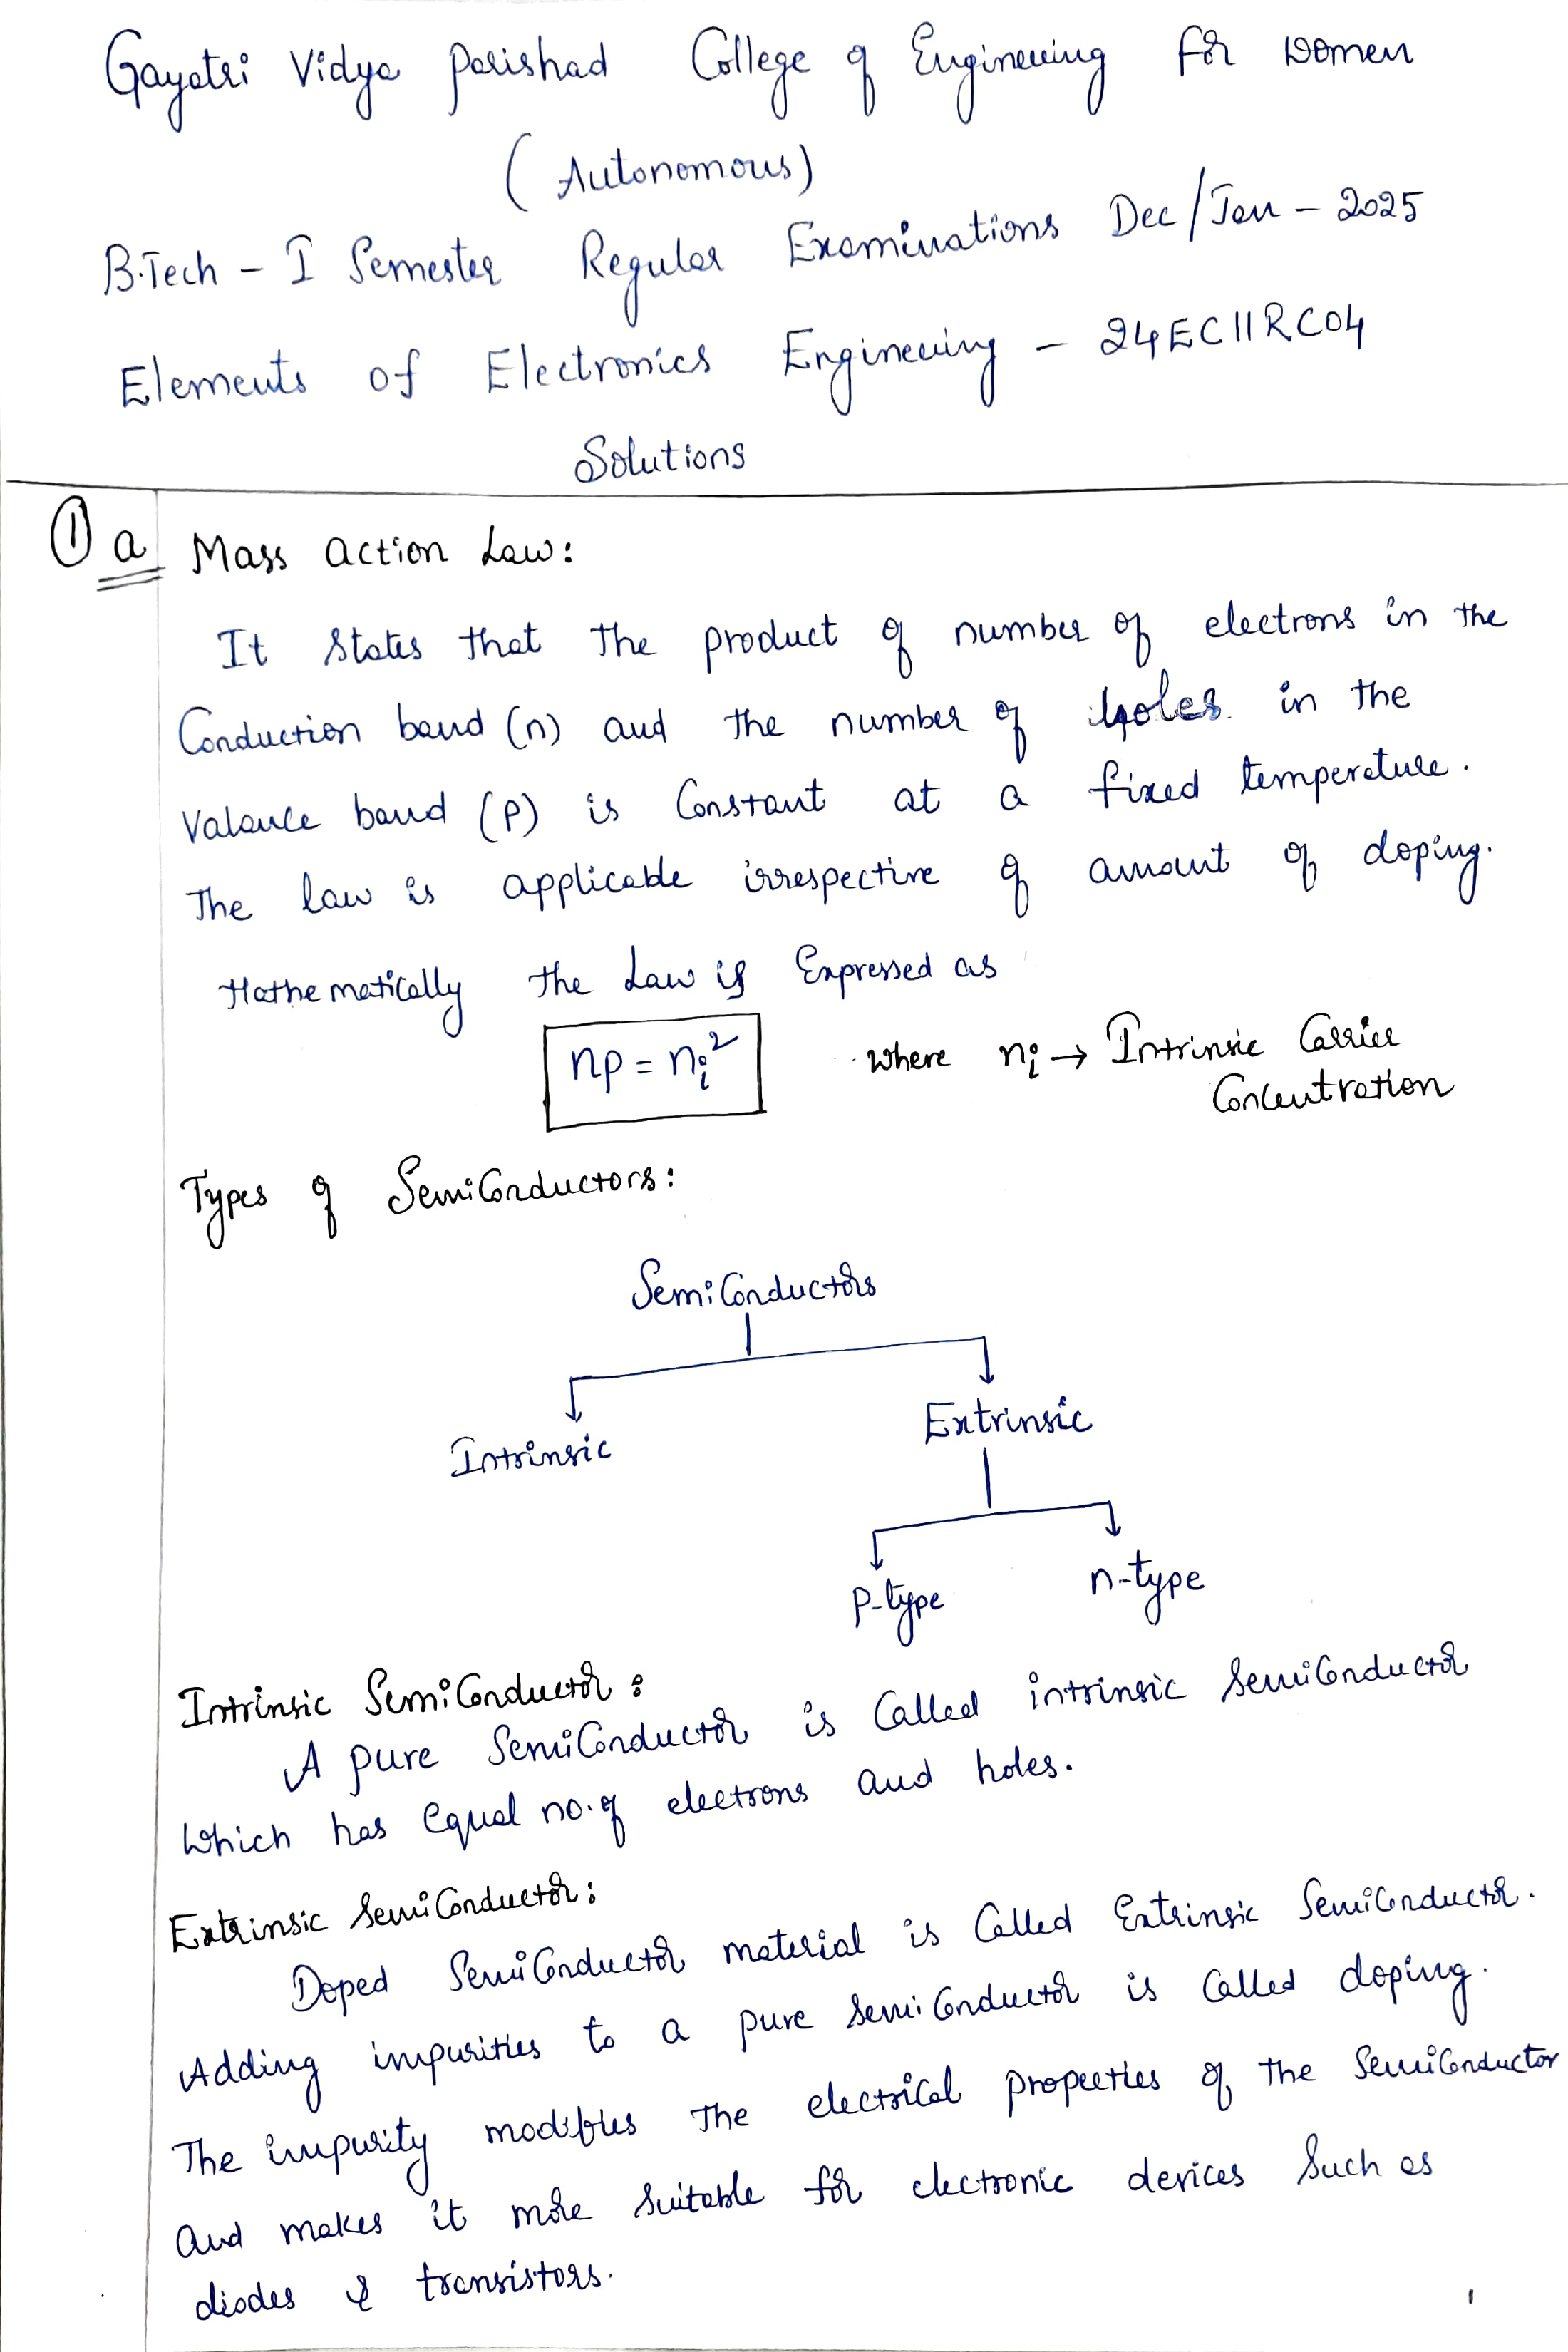 Gayatri Vidya Parishad College of Engineering for Women
(Autonomous)
B.Tech - I Semester Regular Examinations Dec/Jan - 2025
Elements of Electronics Engineering - 24EC11RC04
Solutions
① a Mass action Law:
It states that the product of number of electrons in the
Conduction band (n) and the number of holes in the
Valance band (p) is Constant at a fixed temperature.
The law is applicable irrespective of amount of doping.
Mathematically the Law is Expressed as
np = ni² where ni → Intrinsic Carrier
Concentration
Types of SemiConductors:
SemiConductors
Extrinsic
Intrinsic
P-type n-type
Intrinsic SemiConductor:
A pure SemiConductor is Called intrinsic SemiConductor
Which has equal no. of electrons and holes.
Extrinsic SemiConductor:
Doped SemiConductor material is Called Extrinsic SemiConductor.
Adding impurities to a pure SemiConductor is Called doping.
The impurity modifies the electrical properties of the SemiConductor
and makes it more suitable for electronic devices such as
diodes & transistors.
1